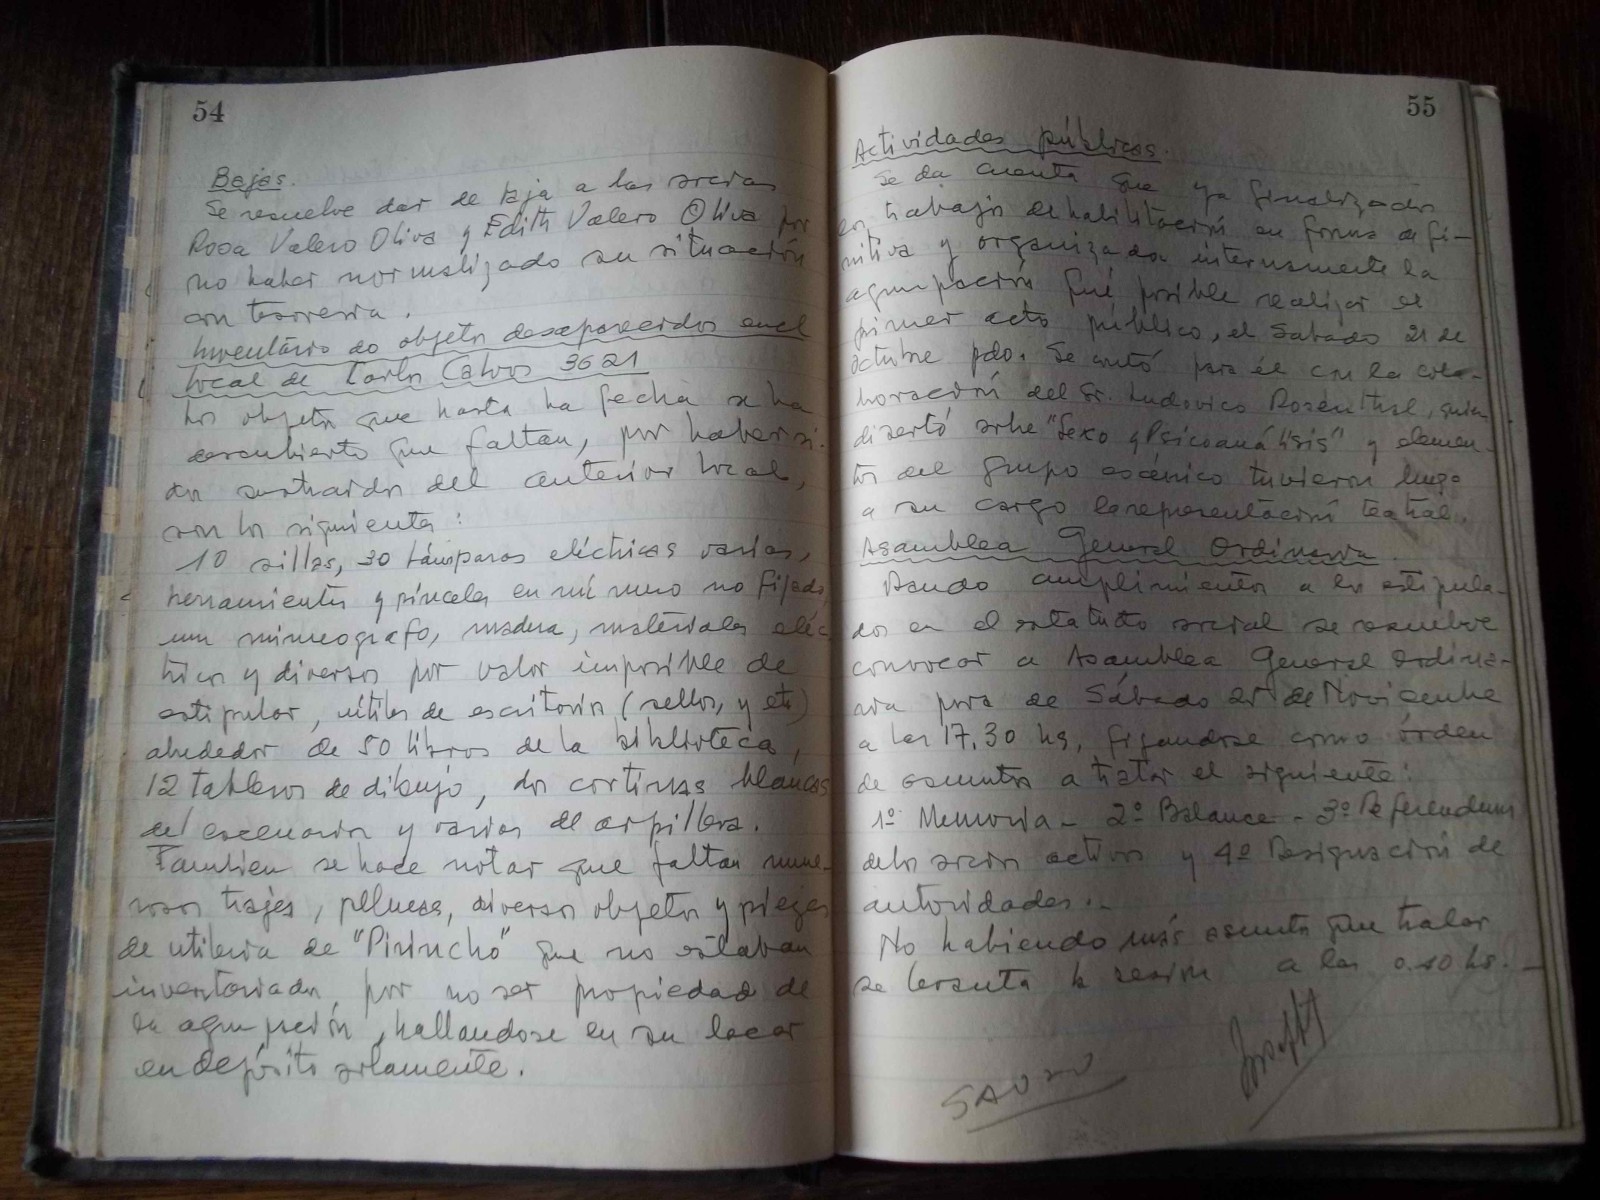 54
Bajas.
Se resuelve dar de baja a las socias
Rosa Valero Oliva y Edith Valero Oliva por
no haber normalizado su situación
con tesoreria.
Inventário de objetos desaparecidos en el
local de Carlos Calvos 3621
Los objetos que hasta la fecha se ha
descubierto que faltan, por haber si-
do sustraidos del anterior local,
son los siguientes:
10 sillas, 30 lámparas eléctricas varias,
herramientas y pinceles en número no fijado,
un mimeografo, madera, materiales eléc
tricos y diversos por valor imposible de
estipular, útiles de escritorio (sellos, y etc)
alrededor de 50 libros de la biblioteca,
12 tableros de dibujo, dos cortinas blancas
del escenario y varias de arpillera.
Tambien se hace notar que faltan nume-
rosos trajes, pelucas, diversos objetos y piezas
de utileria de "Pirincho" que no estaban
inventoriados, por no ser propiedad de
la agrupación, hallandose en su local
en depósito solamente.
55
Actividades públicas.
Se da cuenta que ya finalizados
los trabajos de habilitación en forma defi-
nitiva y organizada internamente la
agrupación fué posible realizar el
primer acto público, el Sabado 21 de
octubre pdo. Se contó para él con la cola-
boración del Sr. Ludovico Rosenthal, quien
disertó sobre "Sexo y Psicoanálisis" y elemen-
tos del grupo escénico tuvieron luego
a su cargo la representación teatral.
Asamblea General Ordinaria.
Dando cumplimiento a lo estipula-
dos en el estatuto social se resuelve
convocar a Asamblea General Ordina-
ria para el Sábado 25 de Noviembre
a las 17.30 hs, fijandose como órden
de asuntos a tratar el siguiente:
1º Memoria - 2º Balance - 3º Referendum
de los socios activos y 4º Designación de
autoridades.-
No habiendo más asuntos que tratar
se levanta la sesión a las 0.10 hs.-